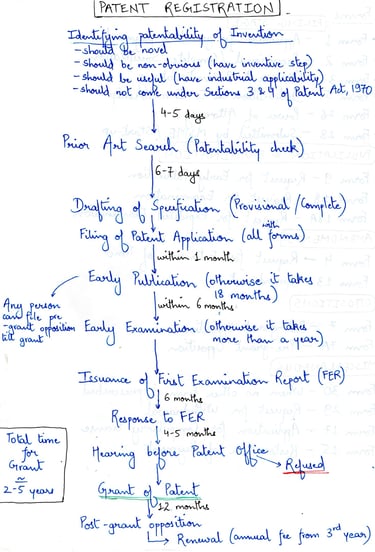 PATENT REGISTRATION
Identifying patentability of Invention
- should be novel
- should be non-obvious (have inventive step)
- should be useful (have industrial applicability)
- should not come under Sections 3 & 4 of Patent Act, 1970
4-5 days
Prior Art Search (Patentability check)
6-7 days
Drafting of Specification (Provisional / Complete)
Filing of Patent Application (with all forms)
within 1 month
Early Publication (otherwise it takes
18 months)
Any person
can file pre
-grant opposition
till grant
within 6 months
Early Examination (otherwise it takes
more than a year)
Issuance of First Examination Report (FER)
6 months
Response to FER
4-5 months
Hearing before Patent Office
Refused
Total time
for
Grant
≈
2-5 years
Grant of Patent
12 months
Post-grant opposition
Renewal (annual fee from 3rd year)